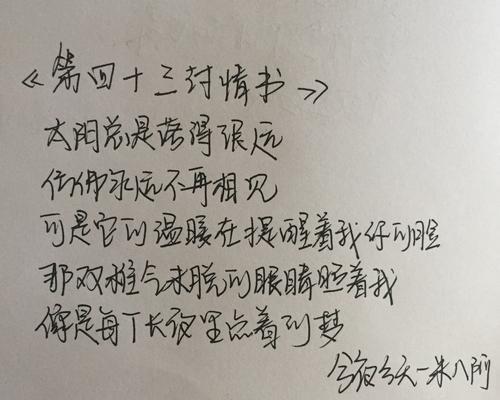 《第四十三封情书》
太阳总是落得很远
仿佛永远不再相见
可是它的温暖在提醒着我你的脸
那双稚气未脱的眼睛照着我
像是每个长夜里点着的梦
今夜今天一米八阿